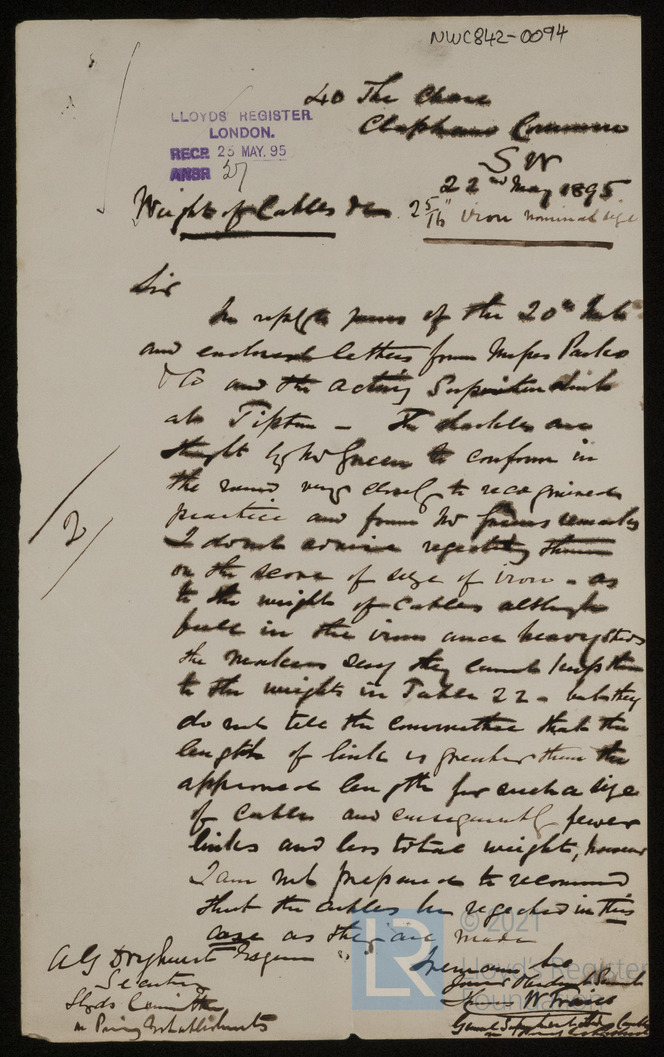 NWC842-0094
40 The Chase
Clapham Common
SW
22nd May 1895
LLOYDS' REGISTER
LONDON.
RECD 25 MAY. 95
ANSR 27
Weight of Cables &c 2 5/16" iron nominal size
Sir
In reply to yours of the 20th Inst
and enclosed letters from Messrs Parkes
& Co and the Acting Superintendent
at Tipton - The shackles are
thought by Mr Green to conform in
the main very closely to recognised
practice and from Mr Green's remarks
I do not advise rejecting them
on the score of size of iron - as
to the weight of Cables although
full in the iron and
the makers say they cannot keep them
to the weights in Table 22 - but they
do not tell the Committee that the
length of link is greater than the
approved length for such a size
of Cable and consequently fewer
links and less total weight, however
I am not prepared to recommend
that the cables be rejected in this
case as they are made
2
I remain Sir
Your Obedient Servt
Thomas W Traill
A G Dryhurst Esquire
Secretary
Lloyds Committee
on Proving Establishments
LR
© 2021
Lloyd's Register
Foundation